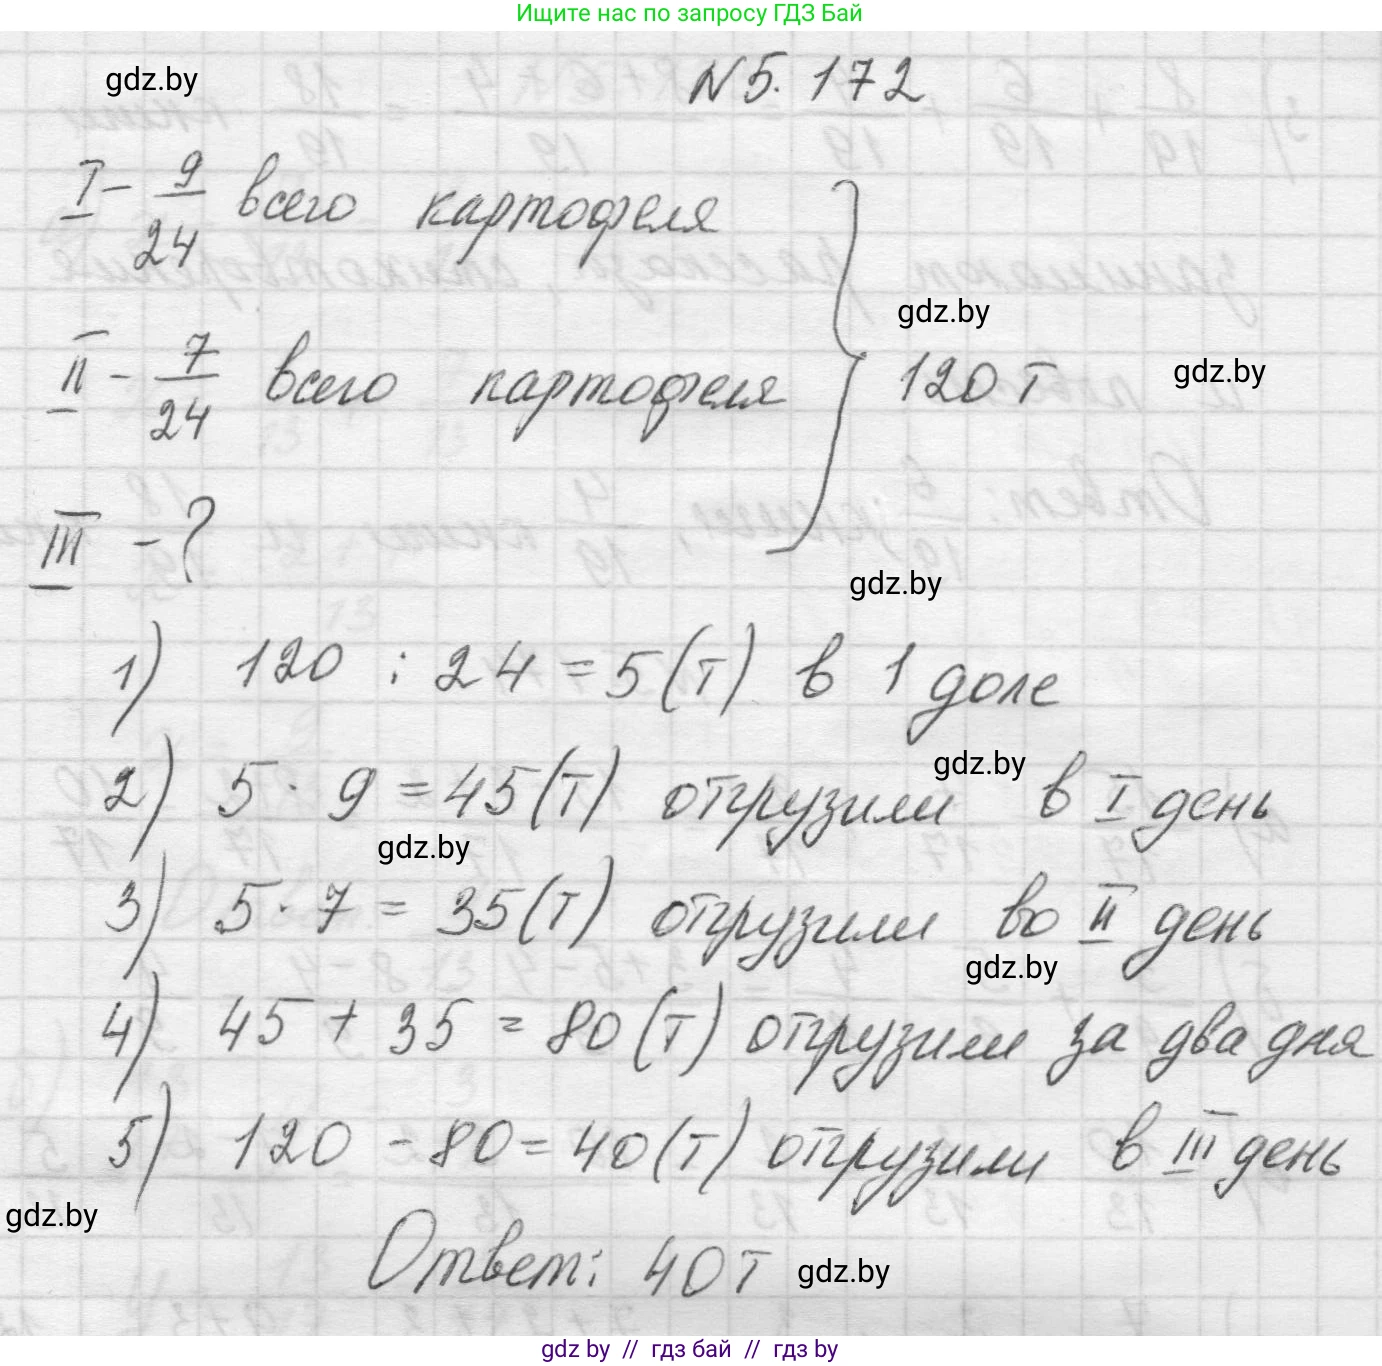 Ищите нас по запросу ГДЗ Бай
gdz.by
№5.172
I - 9/24 всего картофеля
gdz.by
II - 7/24 всего картофеля
120 т
gdz.by
III - ?
gdz.by
1) 120 : 24 = 5 (т) в 1 доле
gdz.by
2) 5 · 9 = 45 (т) отгрузили в I день
gdz.by
3) 5 · 7 = 35 (т) отгрузили во II день
gdz.by
4) 45 + 35 = 80 (т) отгрузили за два дня
5) 120 - 80 = 40 (т) отгрузили в III день
gdz.by
Ответ: 40 т
gdz.by
gdz by // гдз бай // гдз by